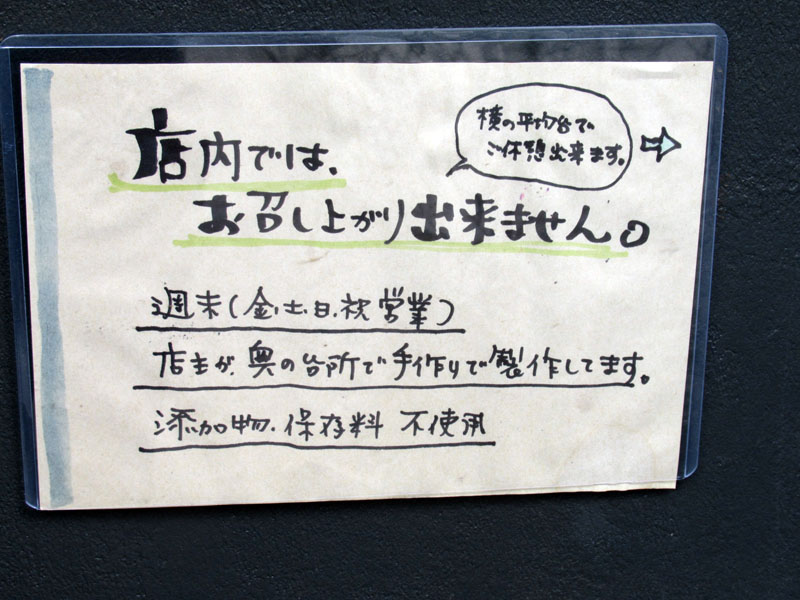 横の平均台で
ご休憩出来ます。
店内では、
お召し上がり出来ません。
週末(金.土.日.祝営業)
店主が、奥の台所で手作りで製作してます。
添加物.保存料 不使用